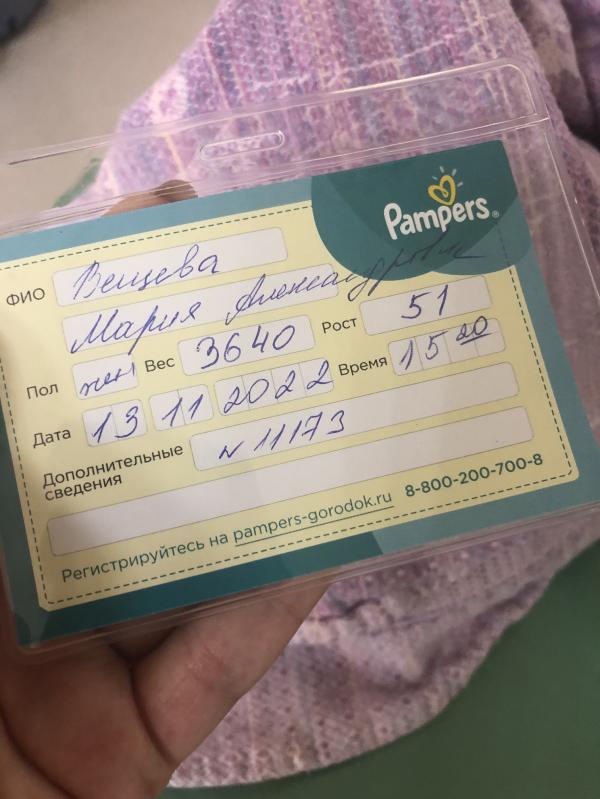 Pampers®
ФИО Вещева
Мария Александровна
Пол жен Вес 3640 Рост 51
Дата 13 11 2022 Время 15 20
Дополнительные сведения N 11173
Регистрируйтесь на pampers-gorodok.ru 8-800-200-700-8